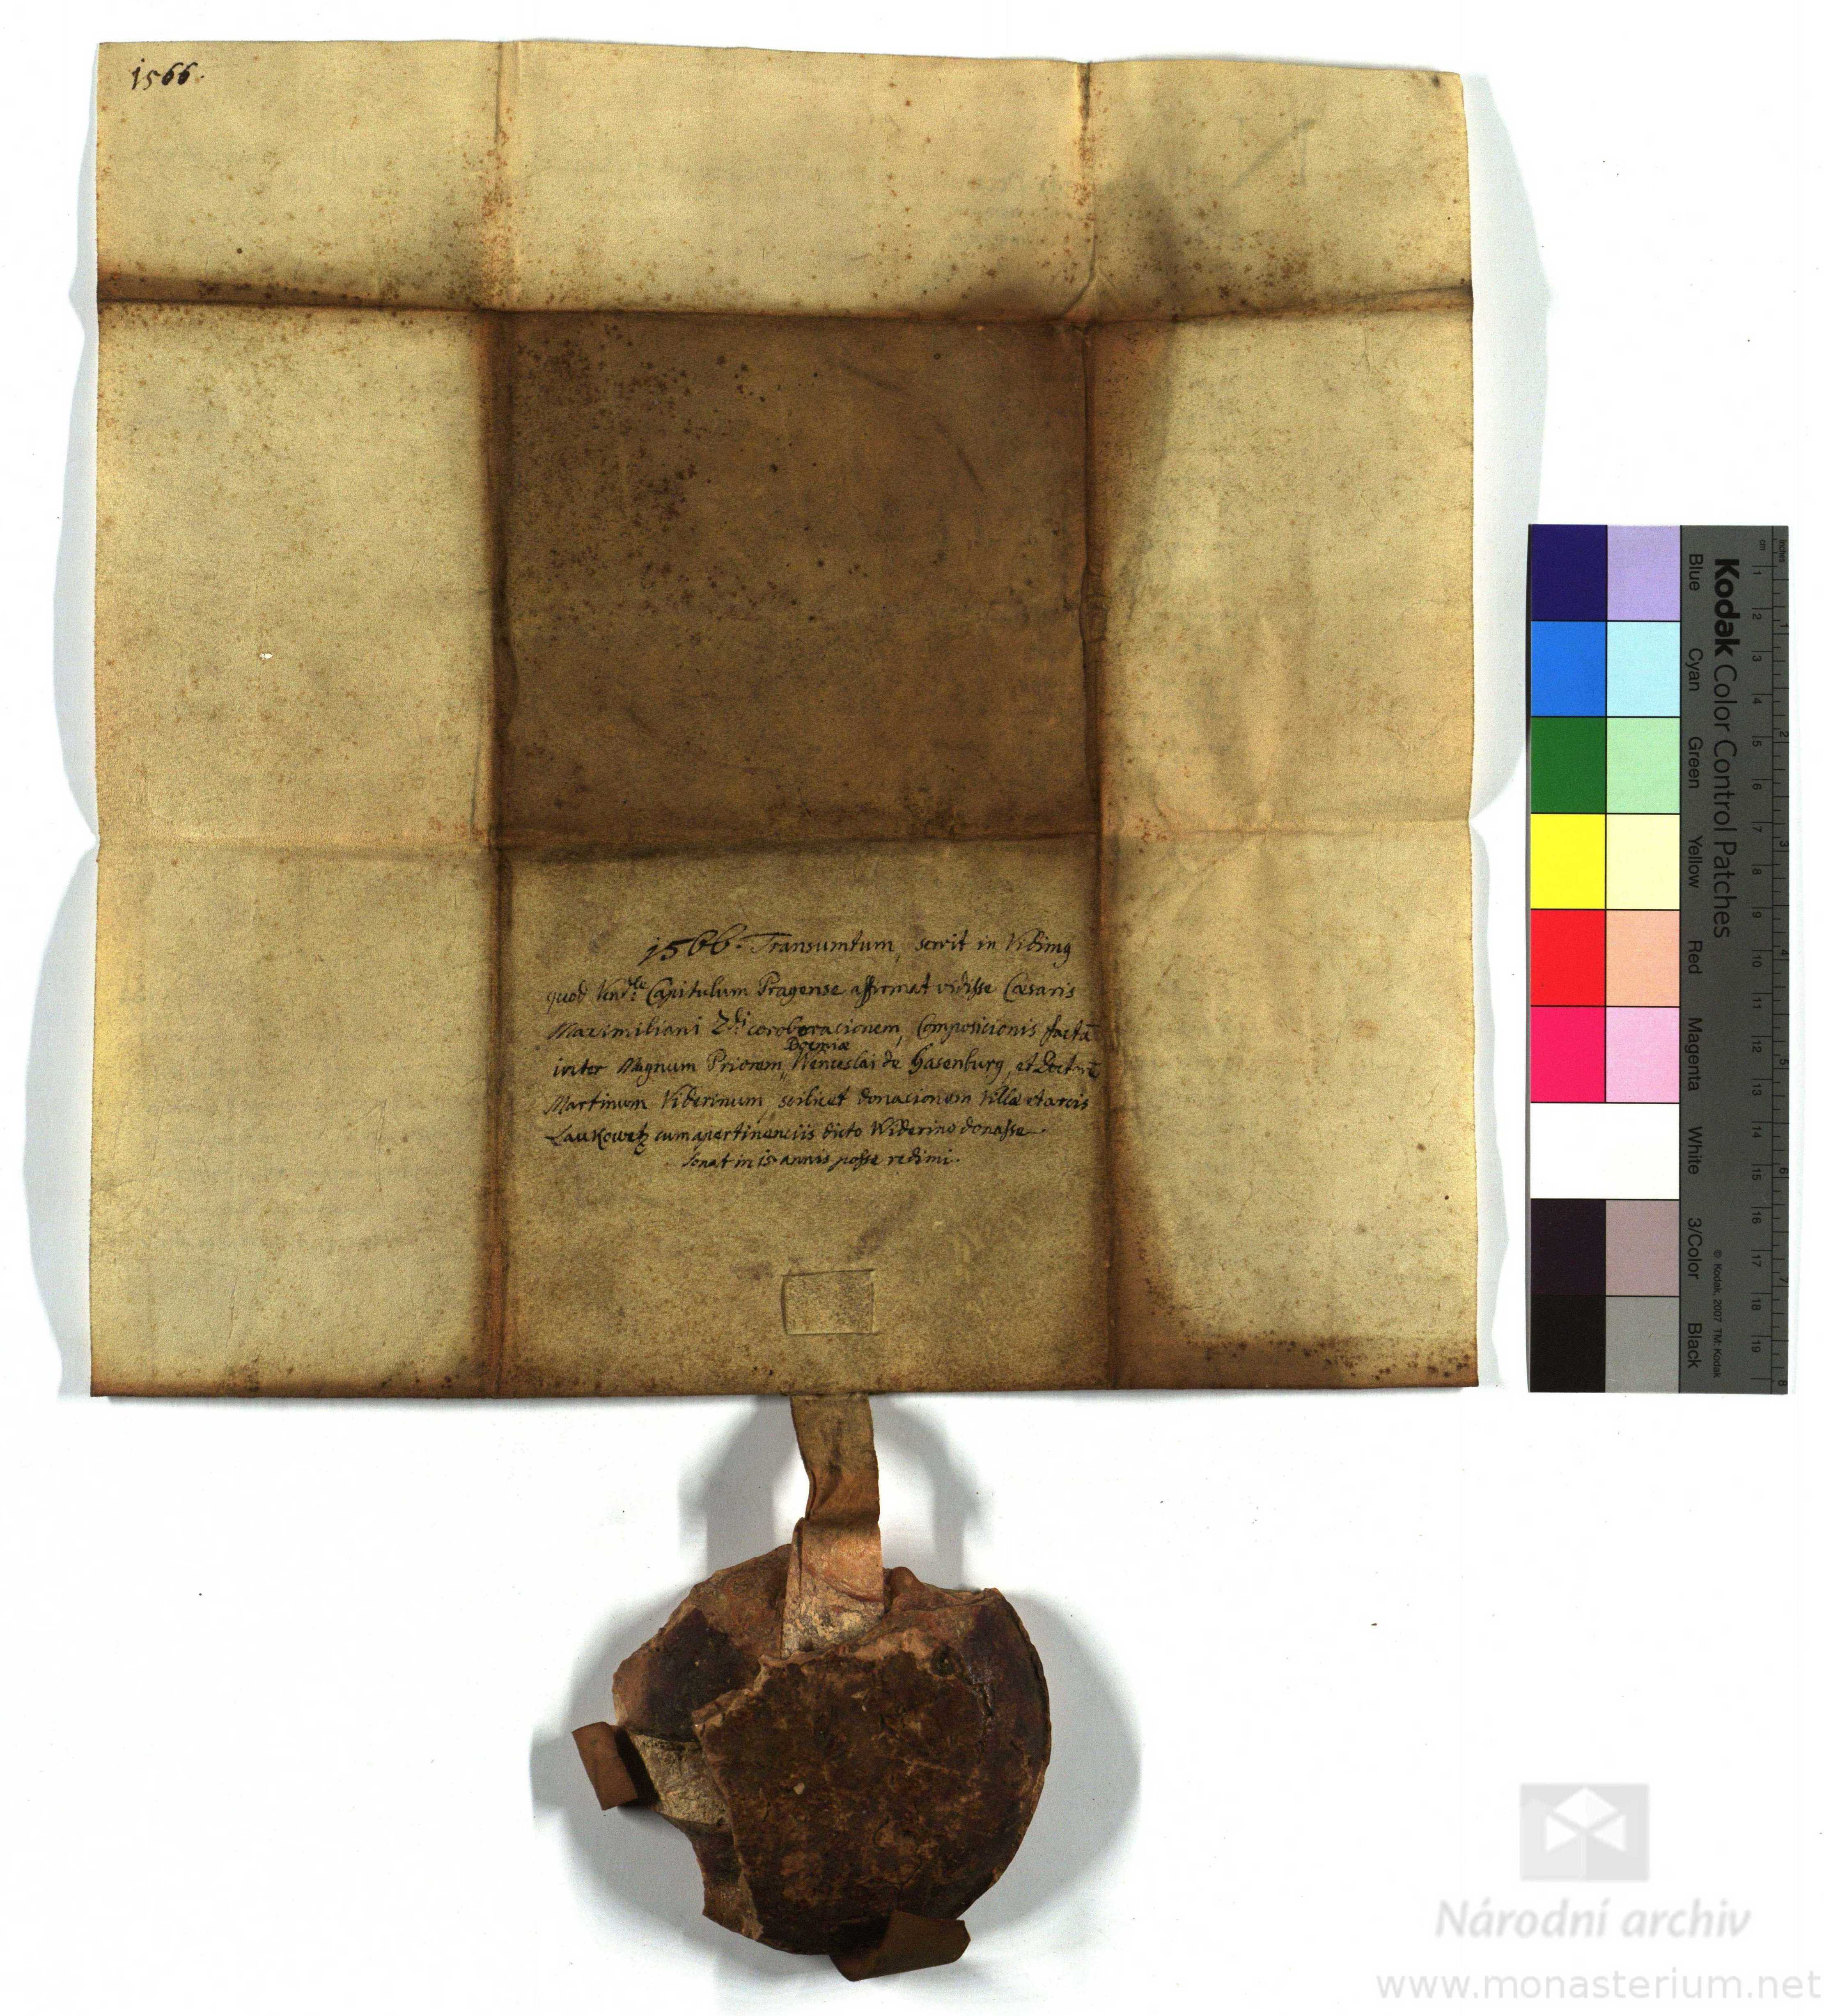 1566.
1566. Transumtum, servit in Vidimg
quod Vendle Capitulum Pragense affirmat vidisse Cæsaris
Maximiliani 2di coroboracionem, Composicionis factā
Boemiæ
inter Magnum Priorem, Wenceslai de Hasenburg, et Doctorē
Martinum Viderinum, scilicet donacionem Villæ et arcis
Laukowetz cum apertinenciis dicto Widerino donasse.
sonat in 15 annis posse redimi.
Kodak Color Control Patches
Blue Cyan Green Yellow Red Magenta White 3/Color Black
© Kodak, 2007 TM: Kodak
inches
cm
1 2 3 4 5 6 7 8 9 10 11 12 13 14 15 16 17 18 19
1 2 3 4 5 6 7 8
Národní archiv
www.monasterium.net